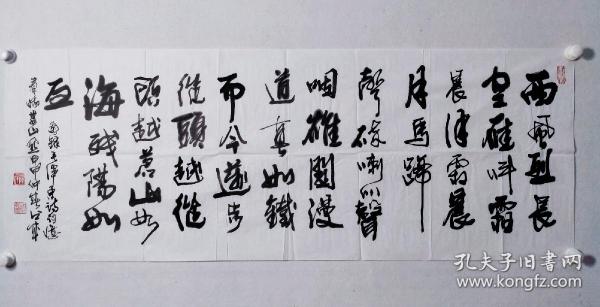 西風烈長
空雁叫霜
晨月霜晨
月馬蹄
聲碎喇叭聲
咽雄關漫
道真如鐵
而今邁步
從頭越從
頭越蒼山如
海殘陽如
血
秦娥婁山關
孔夫子旧书网
www.kongfz.com